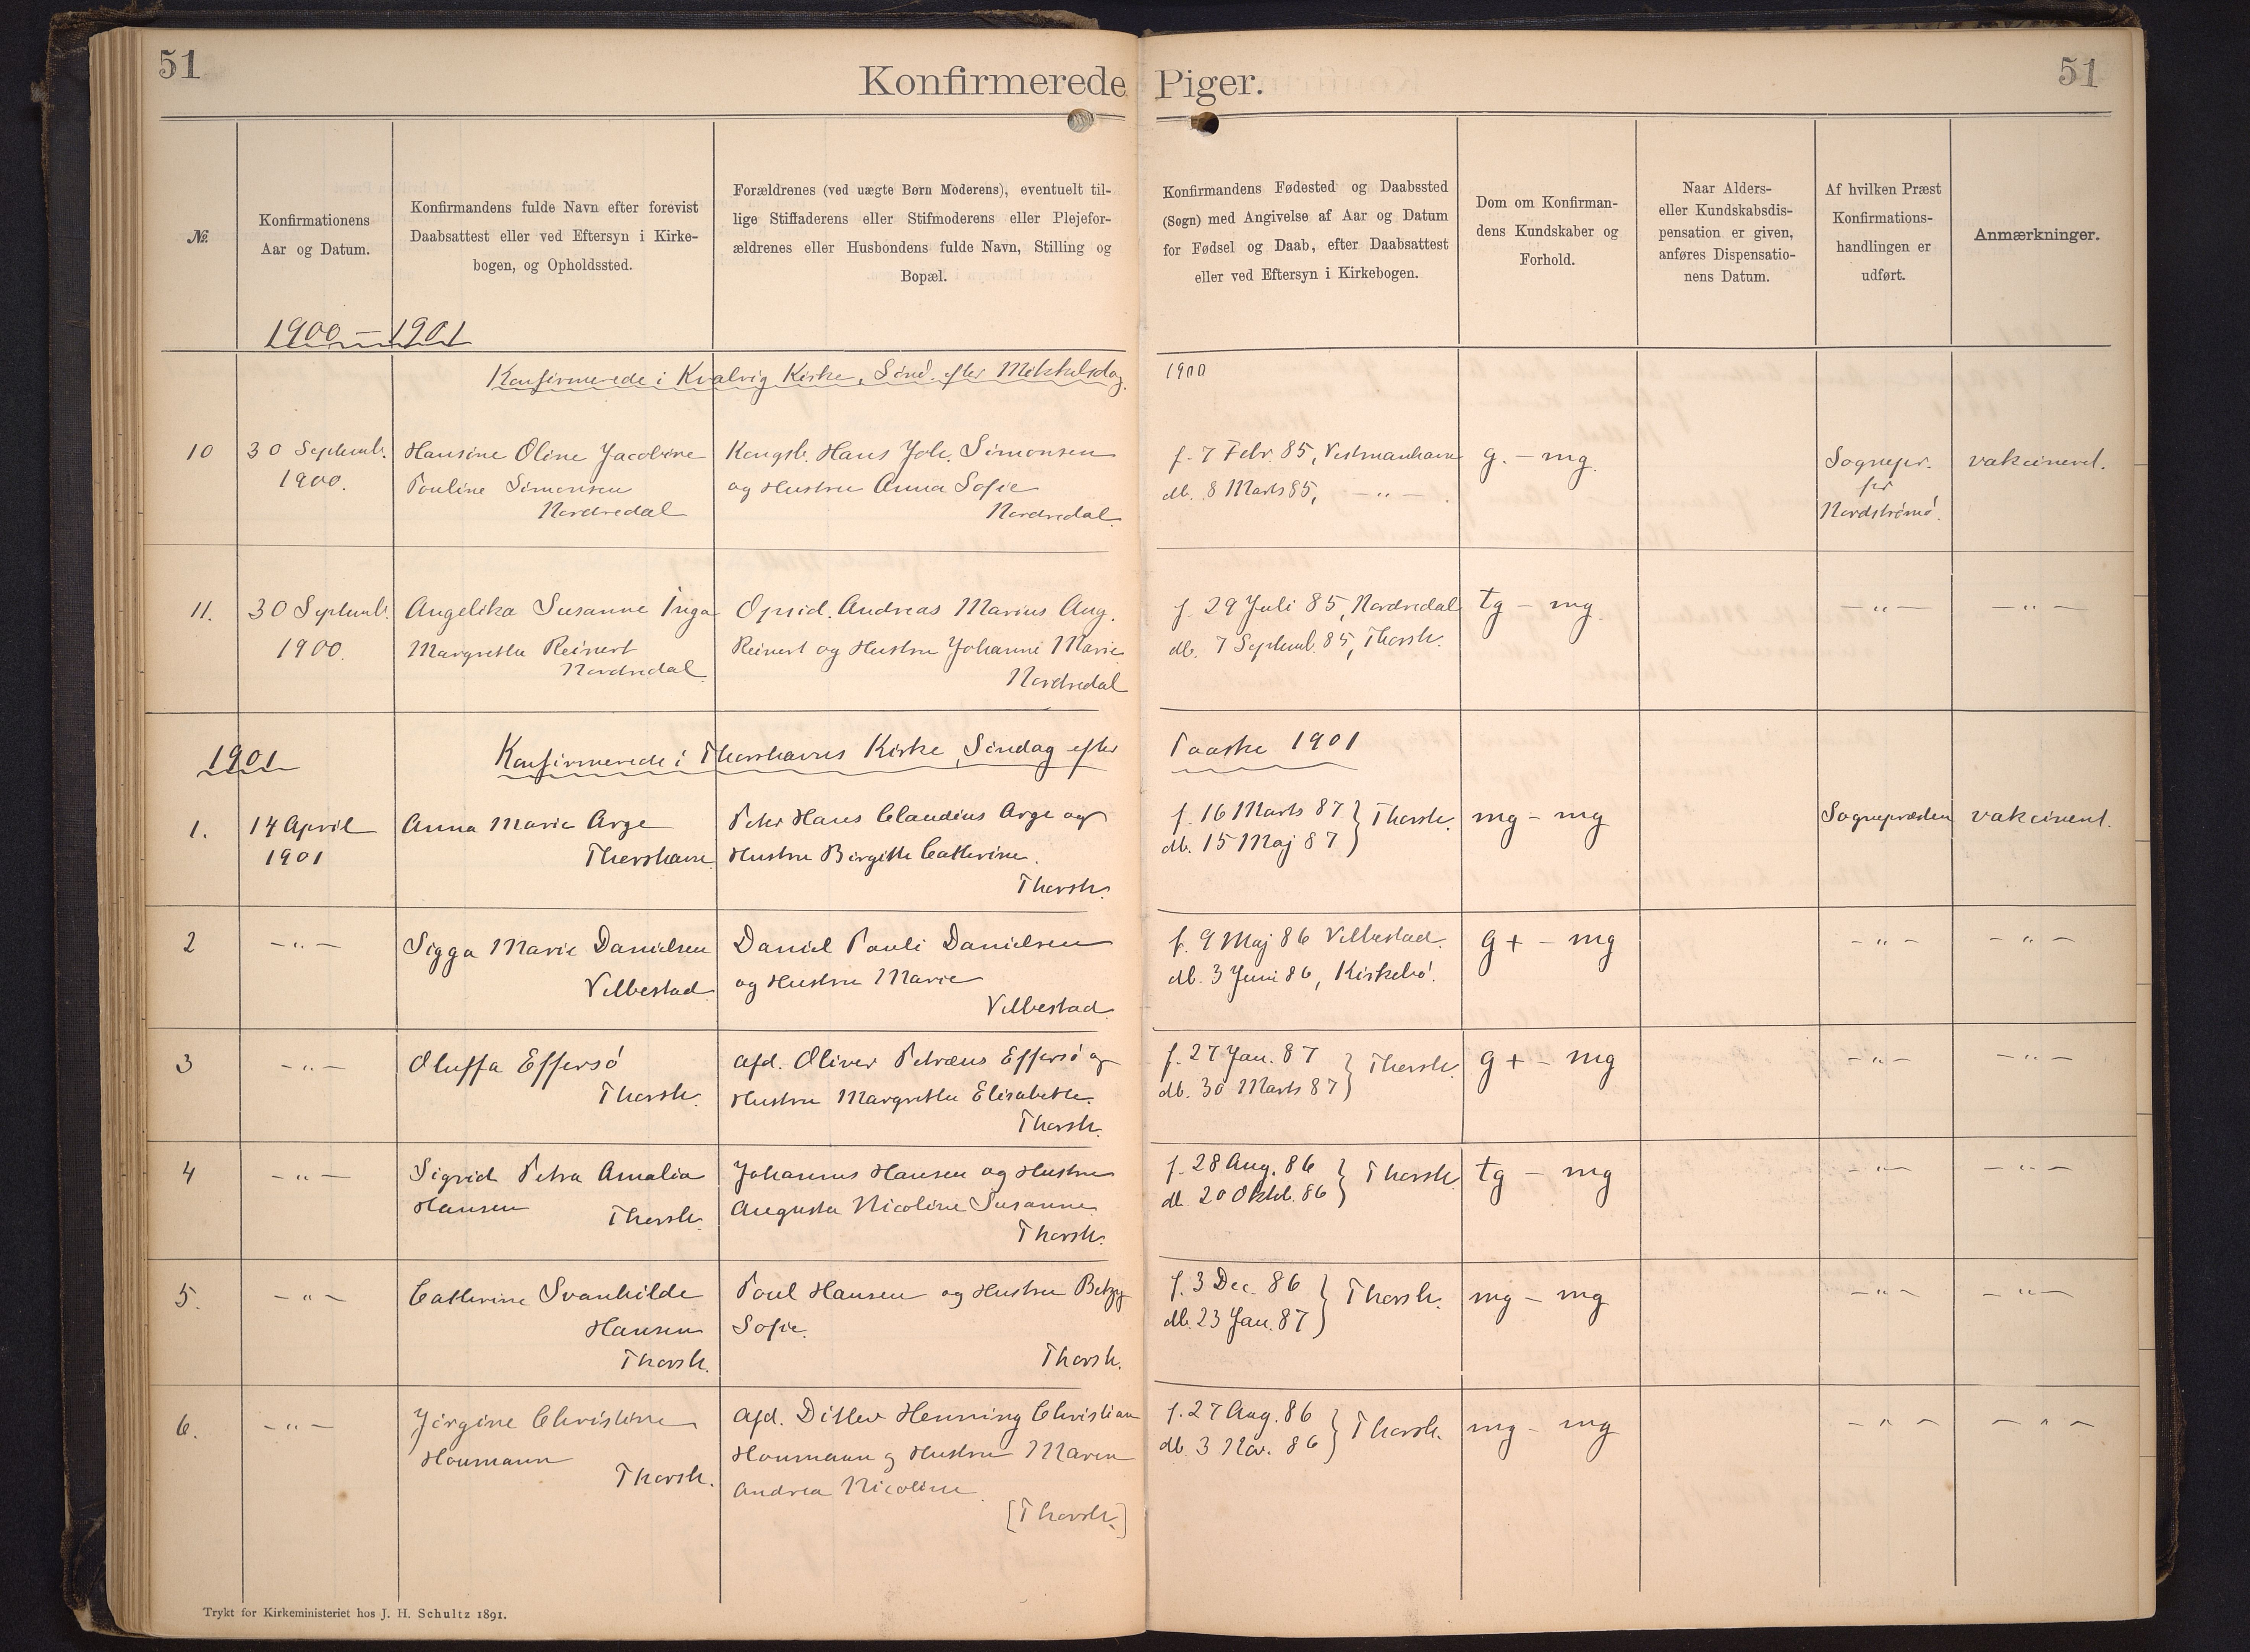 51
Konfirmerede Piger.
51
№
Konfirmationens
Aar og Datum.
Konfirmandens fulde Navn efter forevist
Daabsattest eller ved Eftersyn i Kirke-
bogen, og Opholdssted.
Forældrenes (ved uægte Børn Moderens), eventuelt til-
lige Stiffaderens eller Stifmoderens eller Plejefor-
ældrenes eller Husbondens fulde Navn, Stilling og
Bopæl.
Konfirmandens Fødested og Daabssted
(Sogn) med Angivelse af Aar og Datum
for Fødsel og Daab, efter Daabsattest
eller ved Eftersyn i Kirkebogen.
Dom om Konfirman-
dens Kundskaber og
Forhold.
Naar Alders-
eller Kundskabsdis-
pensation er given,
anføres Dispensatio-
nens Datum.
Af hvilken Præst
Konfirmations-
handlingen er
udført.
Anmærkninger.
1900 – 1901
Konfirmerede i Kvalvig Kirke, Sönd. efter Mikkelsdag. 1900
10
30 Septemb.
1900.
Hansine Oline Jacobine
Pouline Simonsen
Nordredal
Kongsb. Hans Joh. Simonsen
og Hustru Anna Sofie
Nordredal.
f. 7 Febr. 85, Vestmanhavn
db. 8 Marts 85, – " – .
g. – mg.
Sognepr.
for
Nordströmö.
vakcineret.
11.
30 Septemb.
1900.
Angelika Susanne Inga
Margrethe Reinert
Nordredal
Opsid. Andreas Marius Aug.
Reinert og Hustru Johanne Marie
Nordredal
f. 29 Juli 85, Nordredal
db. 7 Septemb. 85, Thorsh.
tg – mg.
– " –
– " –
1901
Konfirmerede i Thorshavns Kirke, Söndag efter Paaske 1901
1.
14 April
1901
Anna Marie Arge
Thorshavn
Peter Hans Claudius Arge og
Hustru Birgitte Cathrine.
Thorsh.
f. 16 Marts 87
db. 15 Maj 87 } Thorsh.
mg – mg
Sognepræsten
vakcineret.
2
– " –
Sigga Marie Danielsen
Velbestad.
Daniel Pauli Danielsen
og Hustru Marie
Velbestad.
f. 9 Maj 86 Velbestad.
db. 3 Juni 86, Kirkebö.
g + – mg
– " –
– " –
3
– " –
Oluffa Effersö
Thorsh.
afd. Oliver Petræus Effersö og
Hustru Margrethe Elisabeth.
Thorsh.
f. 27 Jan. 87
db. 30 Marts 87 } Thorsh.
g + – mg
– " –
– " –
4
– " –
Sigrid Petra Amalia
Hansen
Thorsh.
Johannes Hansen og Hustru
Augusta Nicoline Susanne
Thorsh.
f. 28 Aug. 86
db. 20 Oktob. 86 } Thorsh.
tg – mg
– " –
– " –
5.
– " –
Cathrine Svanhilde
Hansen
Thorsh.
Poul Hansen og Hustru Betzy
Sofie.
Thorsh.
f. 3 Dec. 86
db. 23 Jan. 87 } Thorsh.
mg – mg
– " –
– " –
6.
– " –
Jörgine Christine
Houmann
Thorsh.
afd. Ditlev Henning Christian
Houmann og Hustru Maren
Andrea Nicoline.
[Thorsh.]
f. 27 Aug. 86
db. 3 Nov. 86 } Thorsh.
mg – mg
– " –
– " –
Trykt for Kirkeministeriet hos J. H. Schultz 1891.